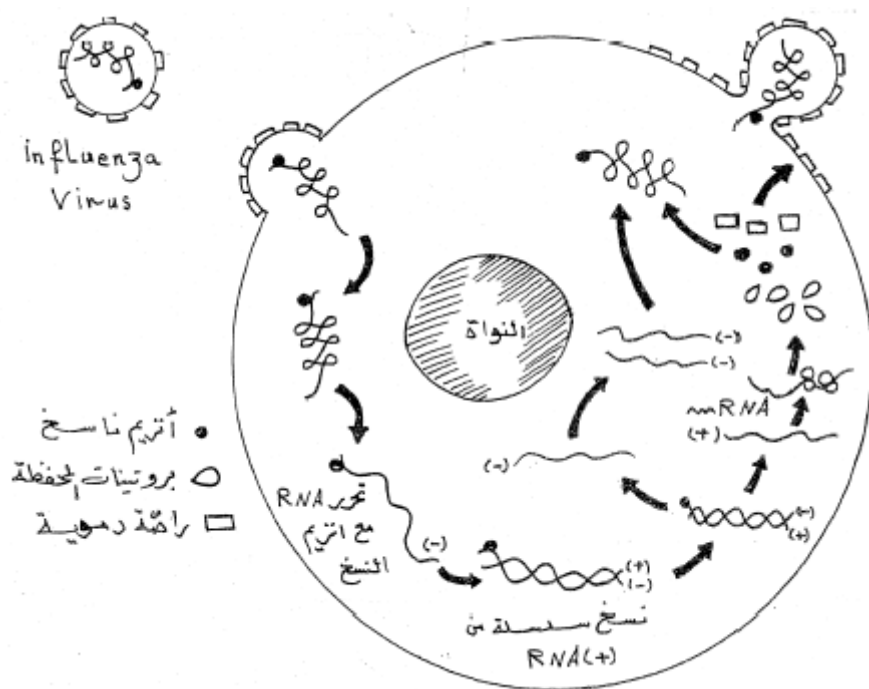 influenza
Virus
النواة
أنزيم ناسخ
بروتينات المحفظة
راصّة دموية
تحرر RNA
مع انزيم
النسخ
(-)
(+)
(-)
نسخ سلسلة من
RNA(+)
(-)
(+)
(-)
(-)
(-)
mRNA
(+)